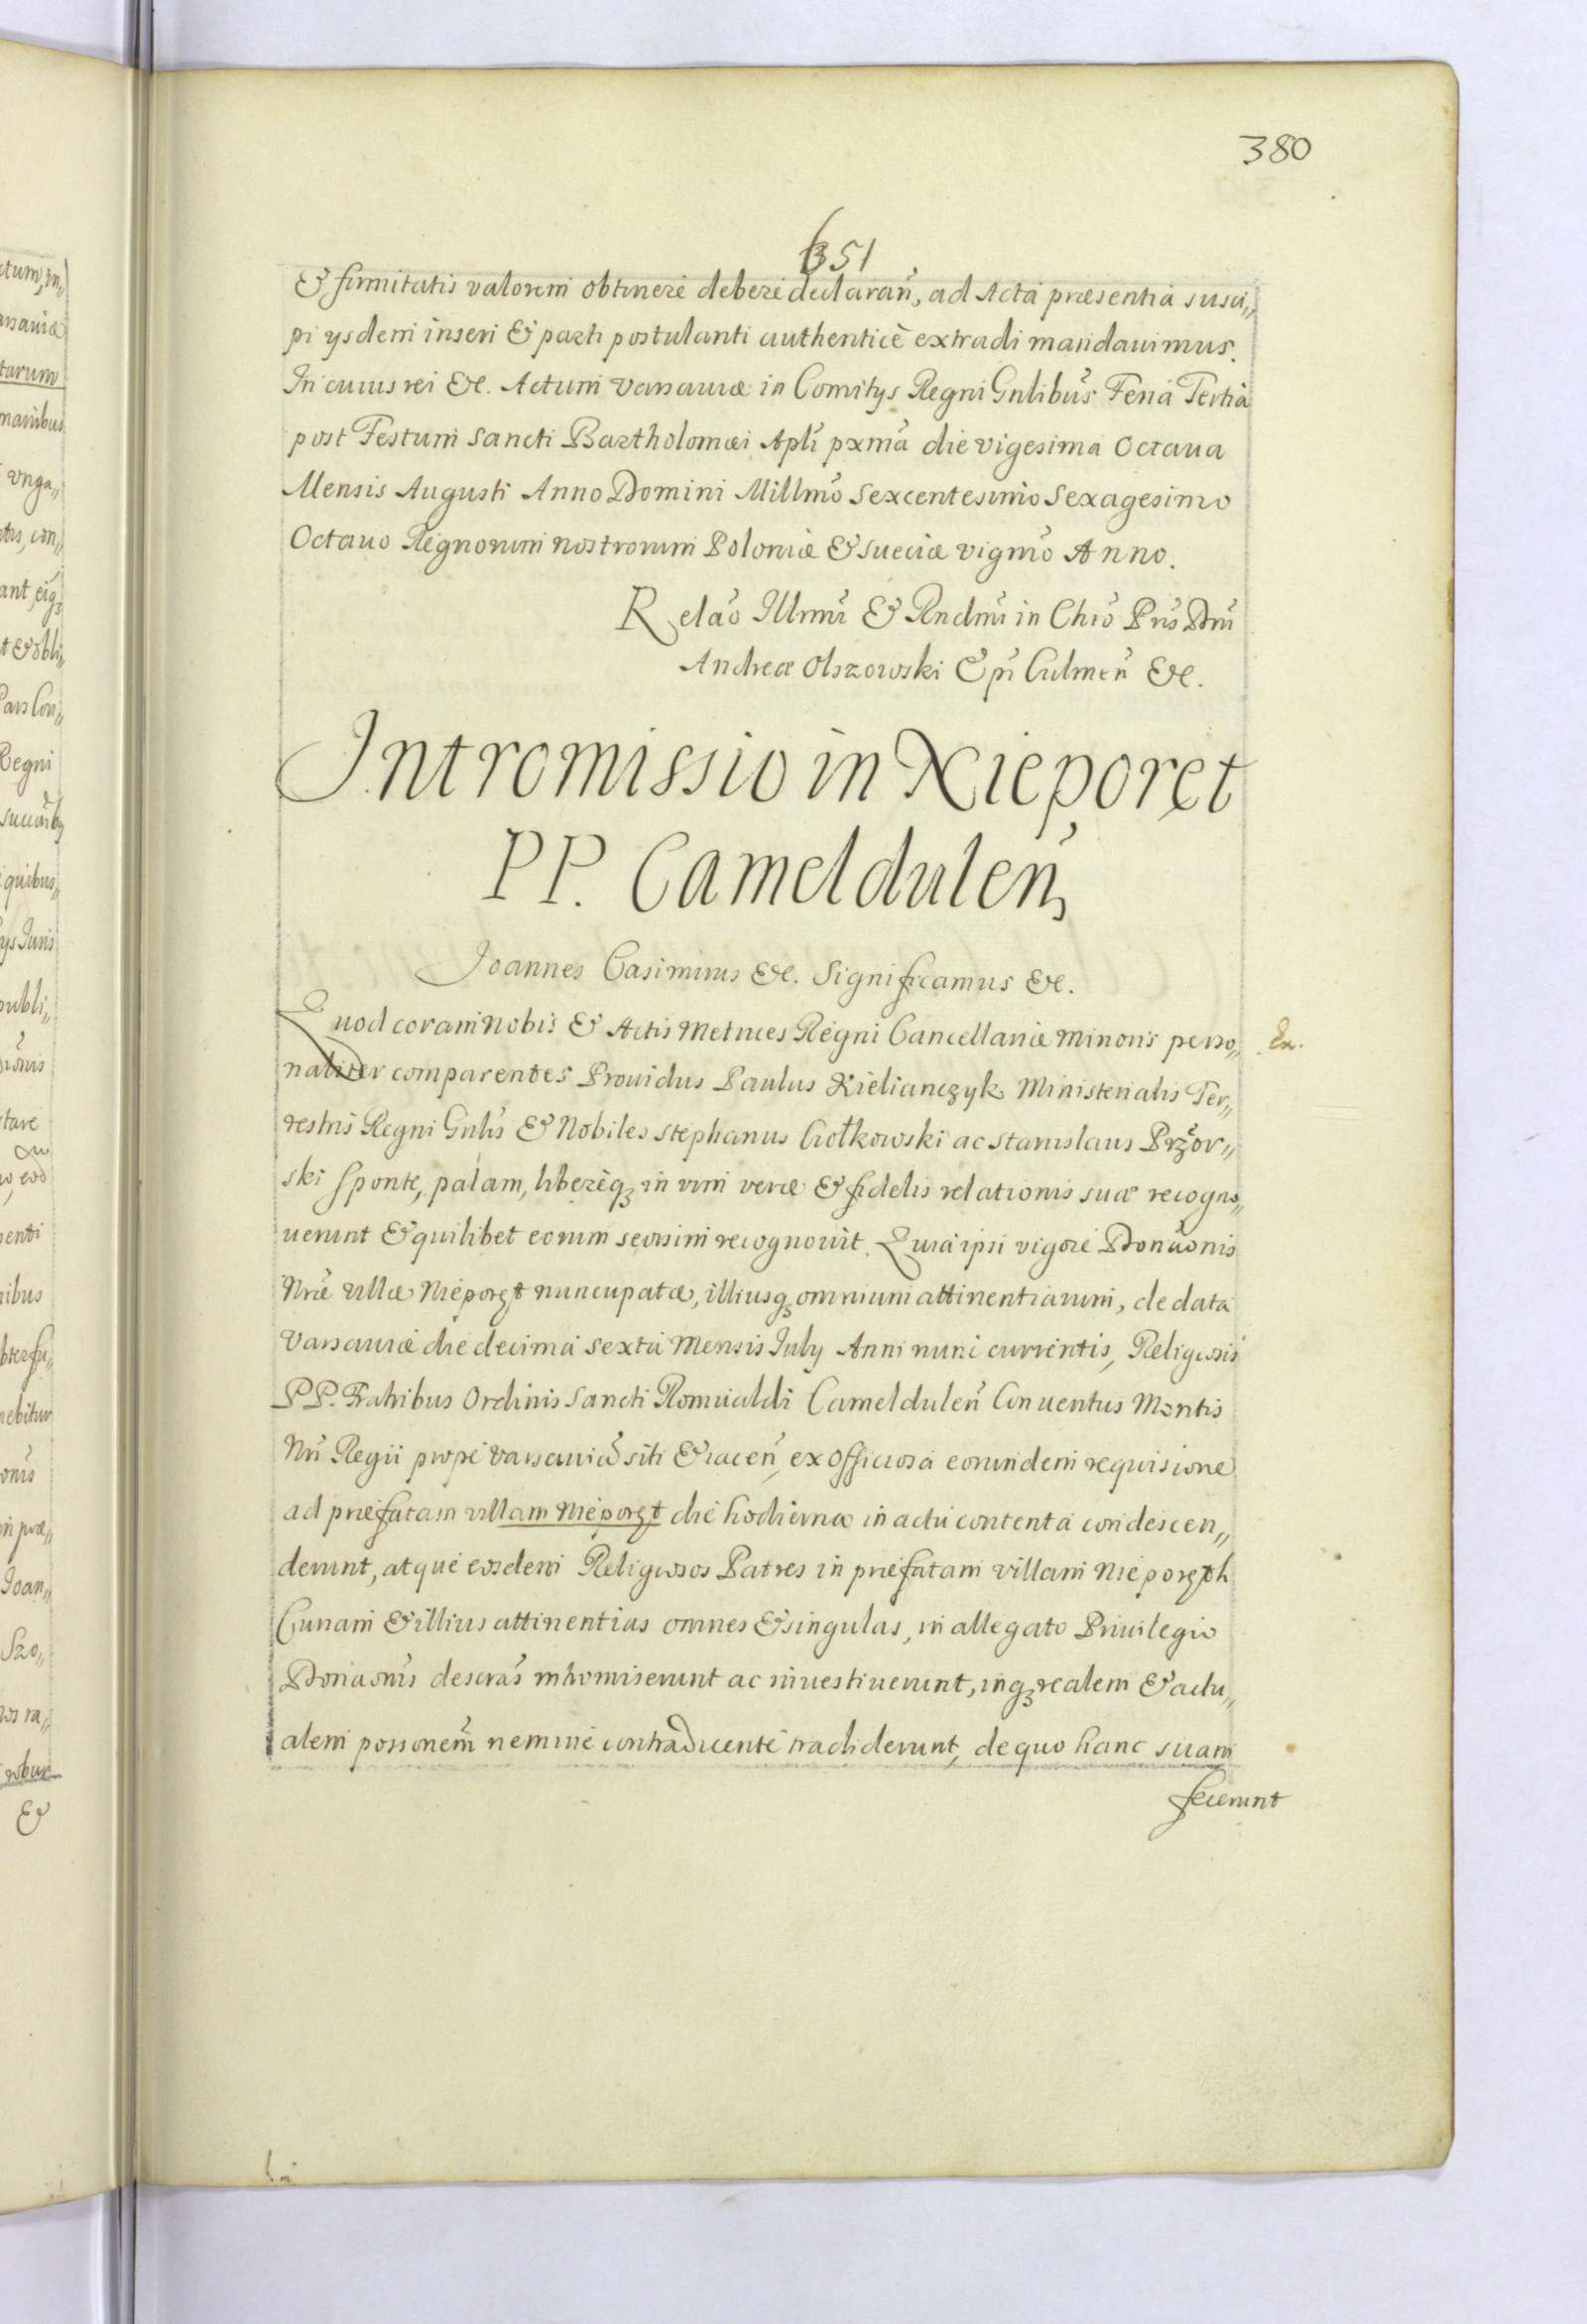 380
651
& firmitatis valorem obtinere debere declarañ, ad Acta præsentia susci„
pi ysdem inseri & parti postulanti authenticè extradi mandauimus.
In cuius rei &c. Actum Varsauiæ in Comitys Regni Gnlibus Feria Tertia
post Festum Sancti Bartholomæi Apli pxma die vigesima Octaua
Mensis Augusti Anno Domini Millmo Sexcentesimo Sexagesimo
Octauo Regnorum nostrorum Poloniæ & Sueciæ vigmo Anno.
Relao Illmi & Rndmi in Chro Pris Dni
Andreæ Olszowski Epi Culmeñ &c.
Intromissio in Nieporęt
PP. Camelduleñ
Joannes Casimirus &c. Significamus &c.
Quod coram Nobis & Actis Metrices Regni Cancellariæ Minoris perso„
naliter comparentes Prouidus Paulus Kielianczyk Ministerialis Ter„
restris Regni Gnlis & Nobiles Stephanus Ciołkowski ac Stanislaus Przeor„
ski sponte, palam, libereq; in vim veræ & fidelis relationis suæ recogno„
uerunt & quilibet eorum seorsim recognouit. Quia ipsi vigore Donaonis
Nræ villæ Nieporęt nuncupatæ, illiusq; omnium attinentiarum, de data
Varsauiæ die decima sexta Mensis July Anni nunc currentis, Religiosis
PP. Fratribus Ordinis Sancti Romualdi Camelduleñ Conuentus Montis
Nri Regii prope Varsauia siti & iaceñ, ex officiosa eorundem requisione
ad præfatam villam Nieporęt die hodierna in actu contenta condescen„
derunt, atque eosdem Religiosos Patres in præfatam villam Nieporęth
Curiam & illius attinentias omnes & singulas, in allegato Priuilegio
Donaonis descras intromiserunt ac inuestiuerunt, inq; realem & actu„
alem possonem nemine contradicente tradiderunt, de quo hanc suam
fecerunt